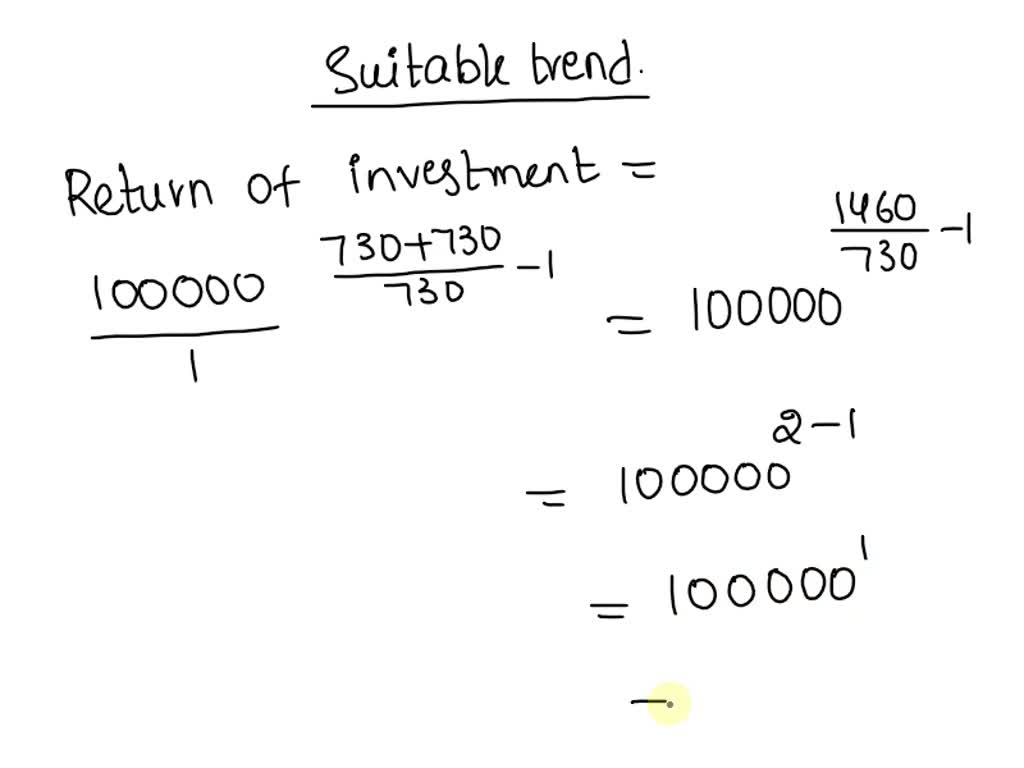 Suitable trend.
Return of investment =
100000/1 730+730/730 -1
= 100000 1460/730 -1
= 100000 2-1
= 100000 1